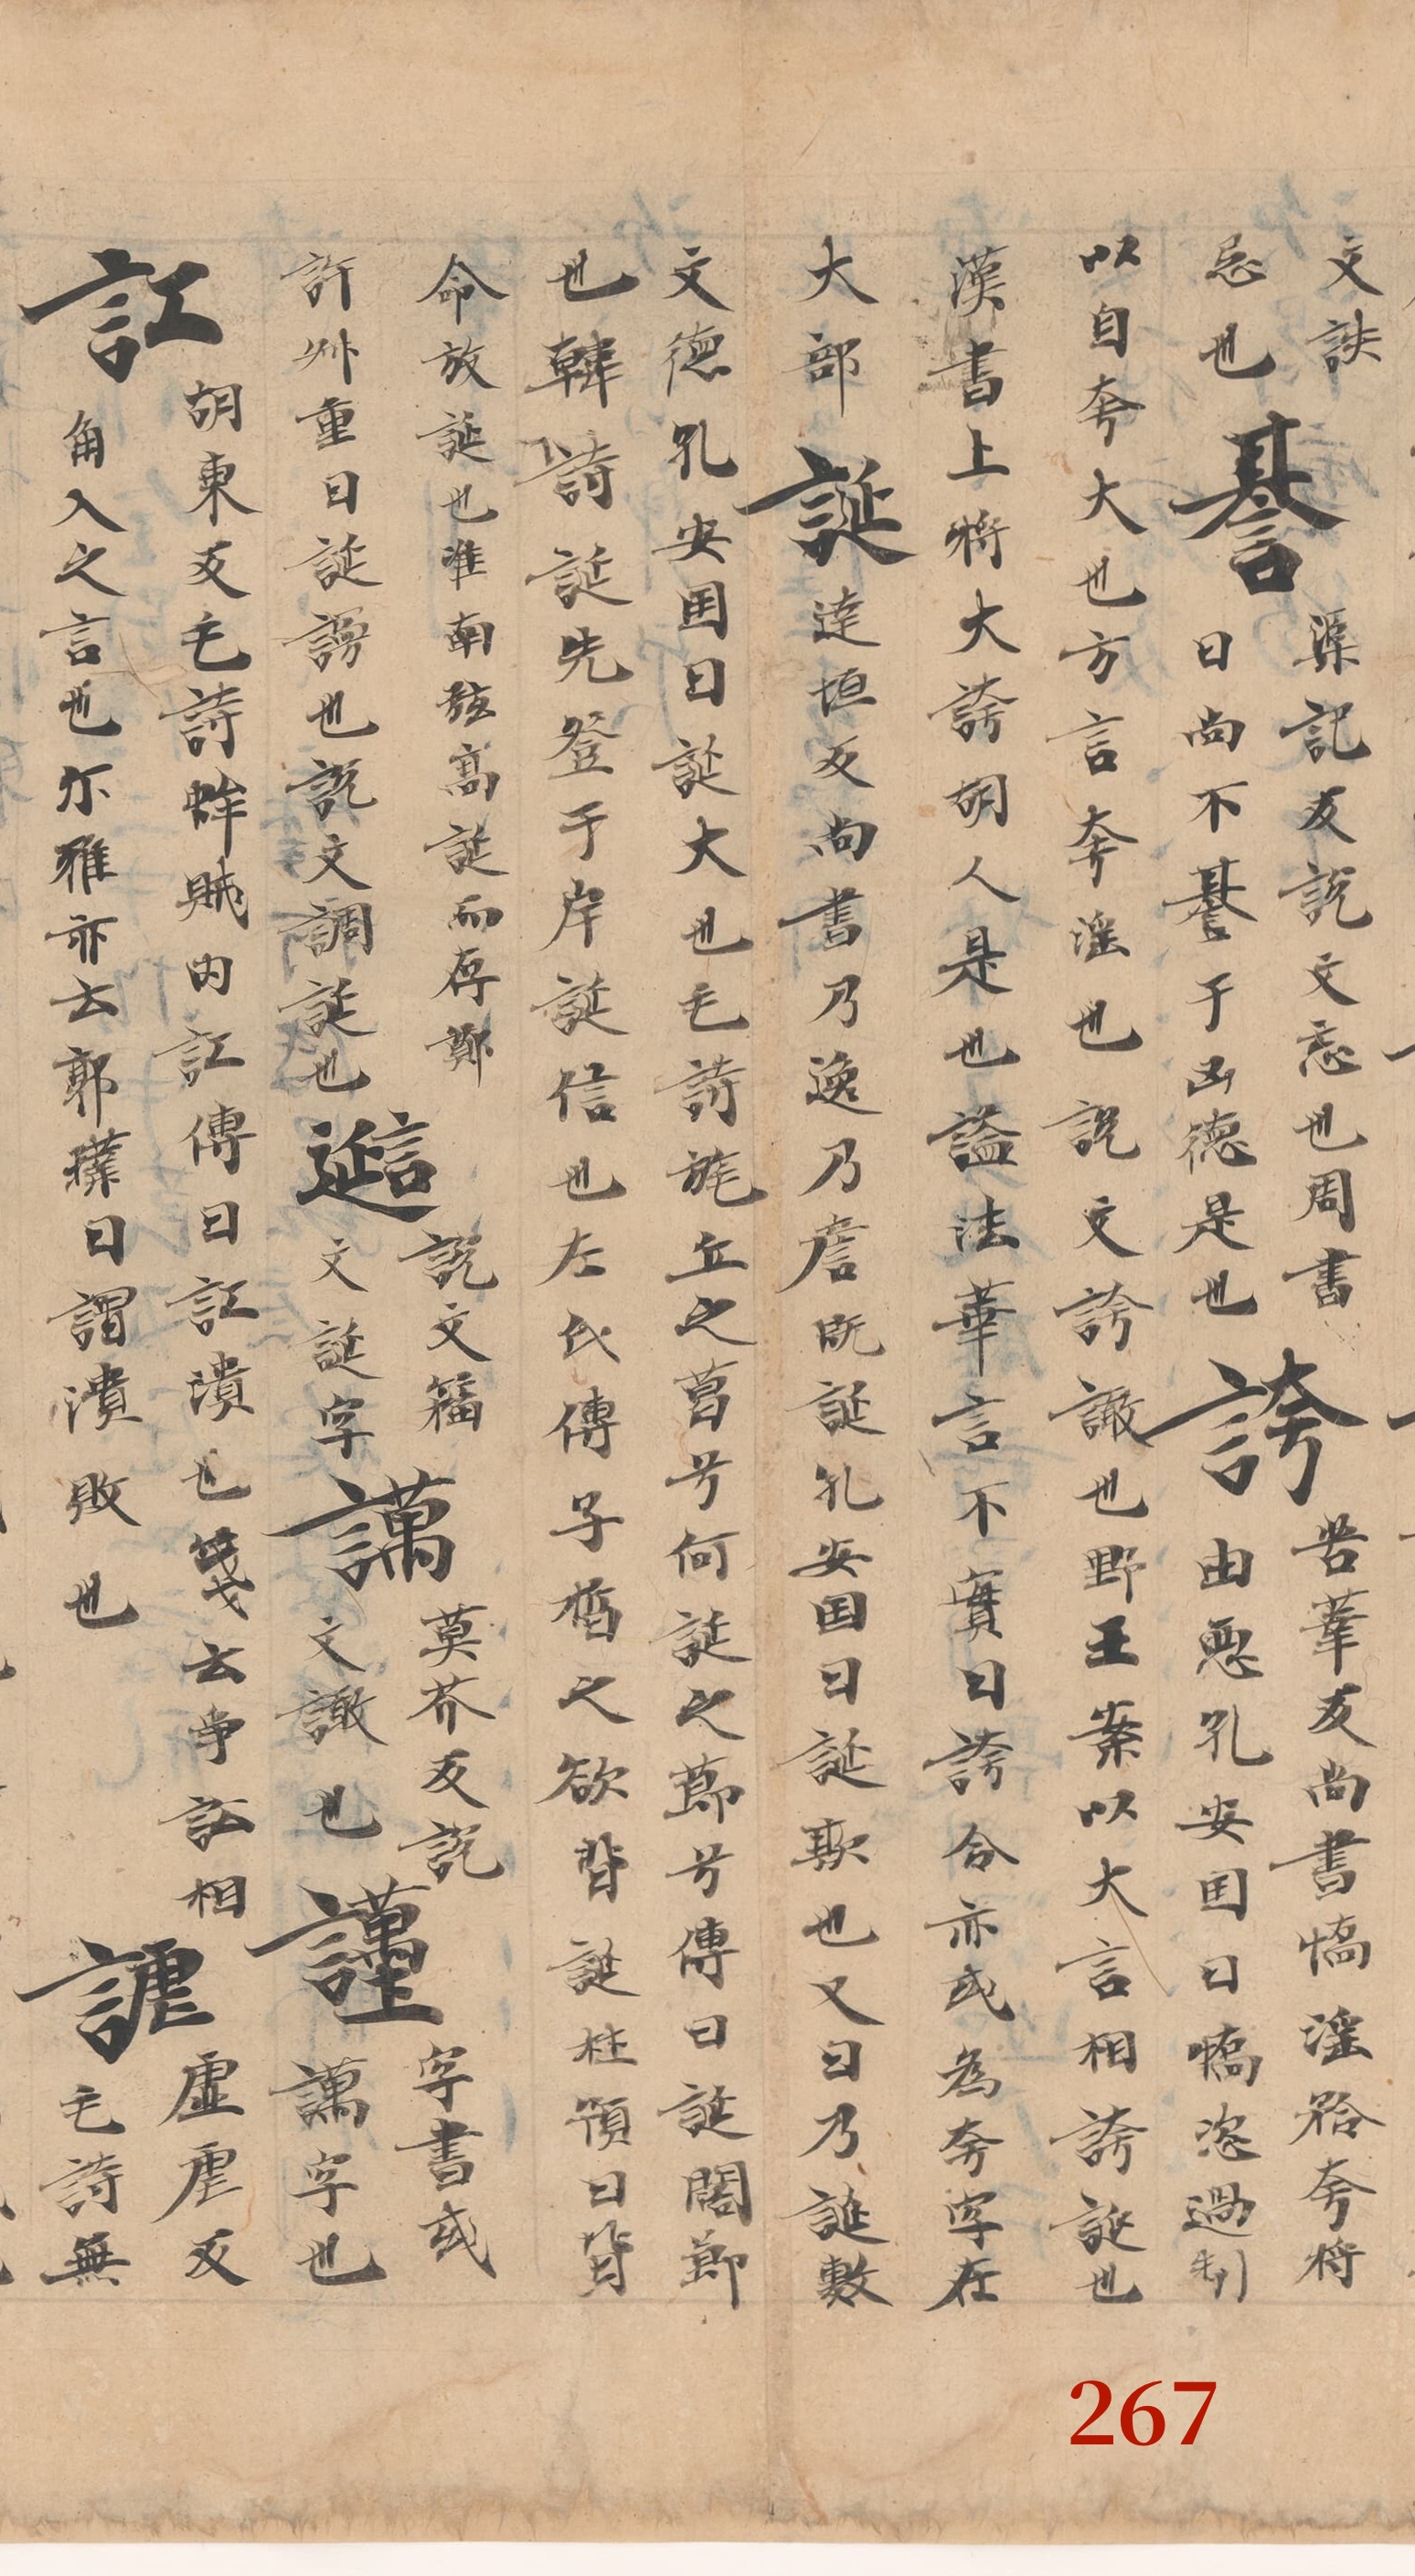 文誺
忌也
諅
渠記反說文忘也周書
曰尚不諅于凶德是也
誇
苦華反尚書憍淫矜夸将
由惡孔安囯曰憍恣過制
以自夸大也方言夸淫也說文誇譀也野王案以大言相誇誕也
漢書上将大誇胡人是也謚法華言不實曰誇合亦或為夸字在
大部
誕
達垣反尚書乃逸乃喭既誕孔安囯曰誕欺也又曰乃誕敷
文德孔安囯曰誕大也毛詩旄丘之葛兮何誕之莭兮傳曰誕闊節
也韓詩誕先登于岸誕信也左氏傳子楈之欲背誕杜預曰背
命放誕也淮南弦高誕而存鄭
許州重曰誕謾也說文調誕也
說文籀
文誕字
䜕
莫芥反說
文譀也
字書或
䜕字也
訌
胡東反毛詩蟊賊内訌傳曰訌潰也箋云争訟相
角入之言也尒雅亦云郭璞曰謂潰敗也
謔
虛虐反
毛詩無
267